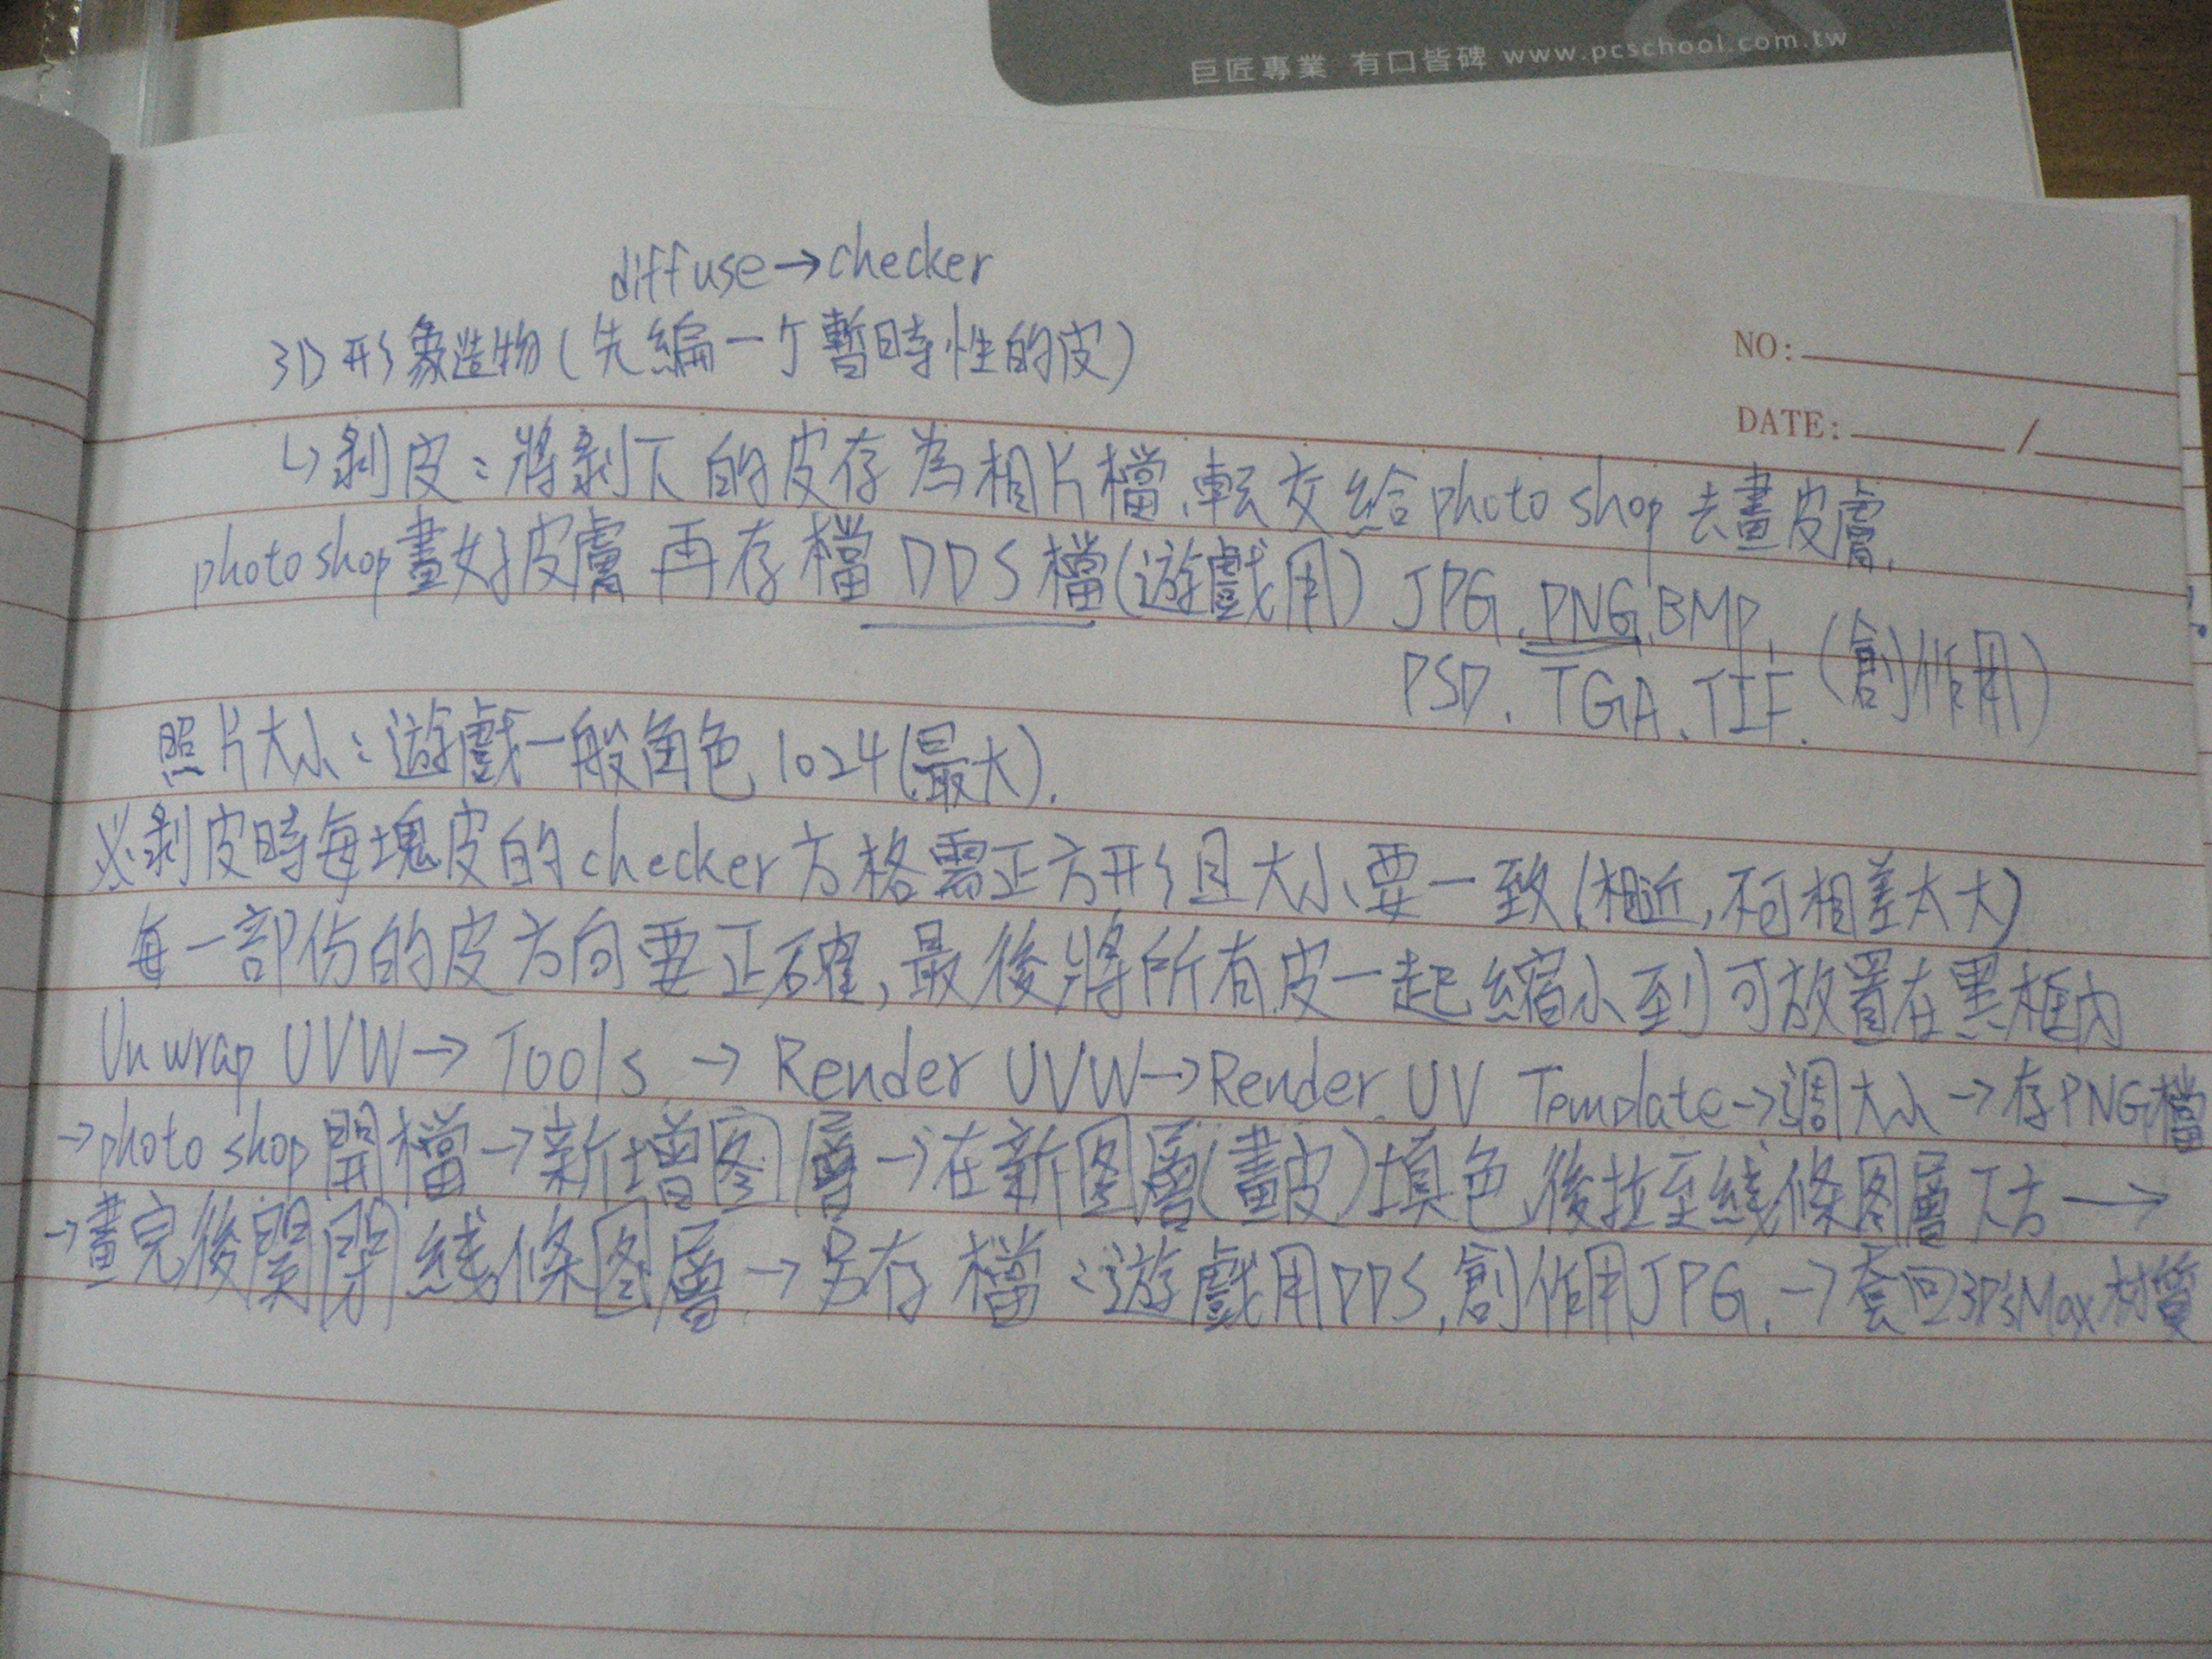 巨匠專業 有口皆碑 www.pcschool.com.tw
diffuse→checker
3D形象造物(先編一个暫時性的皮)
NO:
DATE: /
↳剝皮:將剝下的皮存為相片檔,転交給photo shop去畫皮膚.
photo shop畫好皮膚再存檔DDS檔(遊戲用) JPG.PNG.BMP.
PSD.TGA.TIF.(創作用)
照片大小:遊戲一般角色1024(最大).
※剝皮時每塊皮的checker方格需正方形且大小要一致(相近,不可相差太大)
每一部份的皮方向要正確,最後將所有皮一起縮小到可放置在黑框內
Unwrap UVW→Tools→Render UVW→Render UV Template→調大小→存PNG檔
→photo shop開檔→新增图層→在新图層(畫皮)填色後拉至线條图層下方→
→畫完後関閉线條图層→另存檔:遊戲用DDS,創作用JPG.→套回3DsMax材質